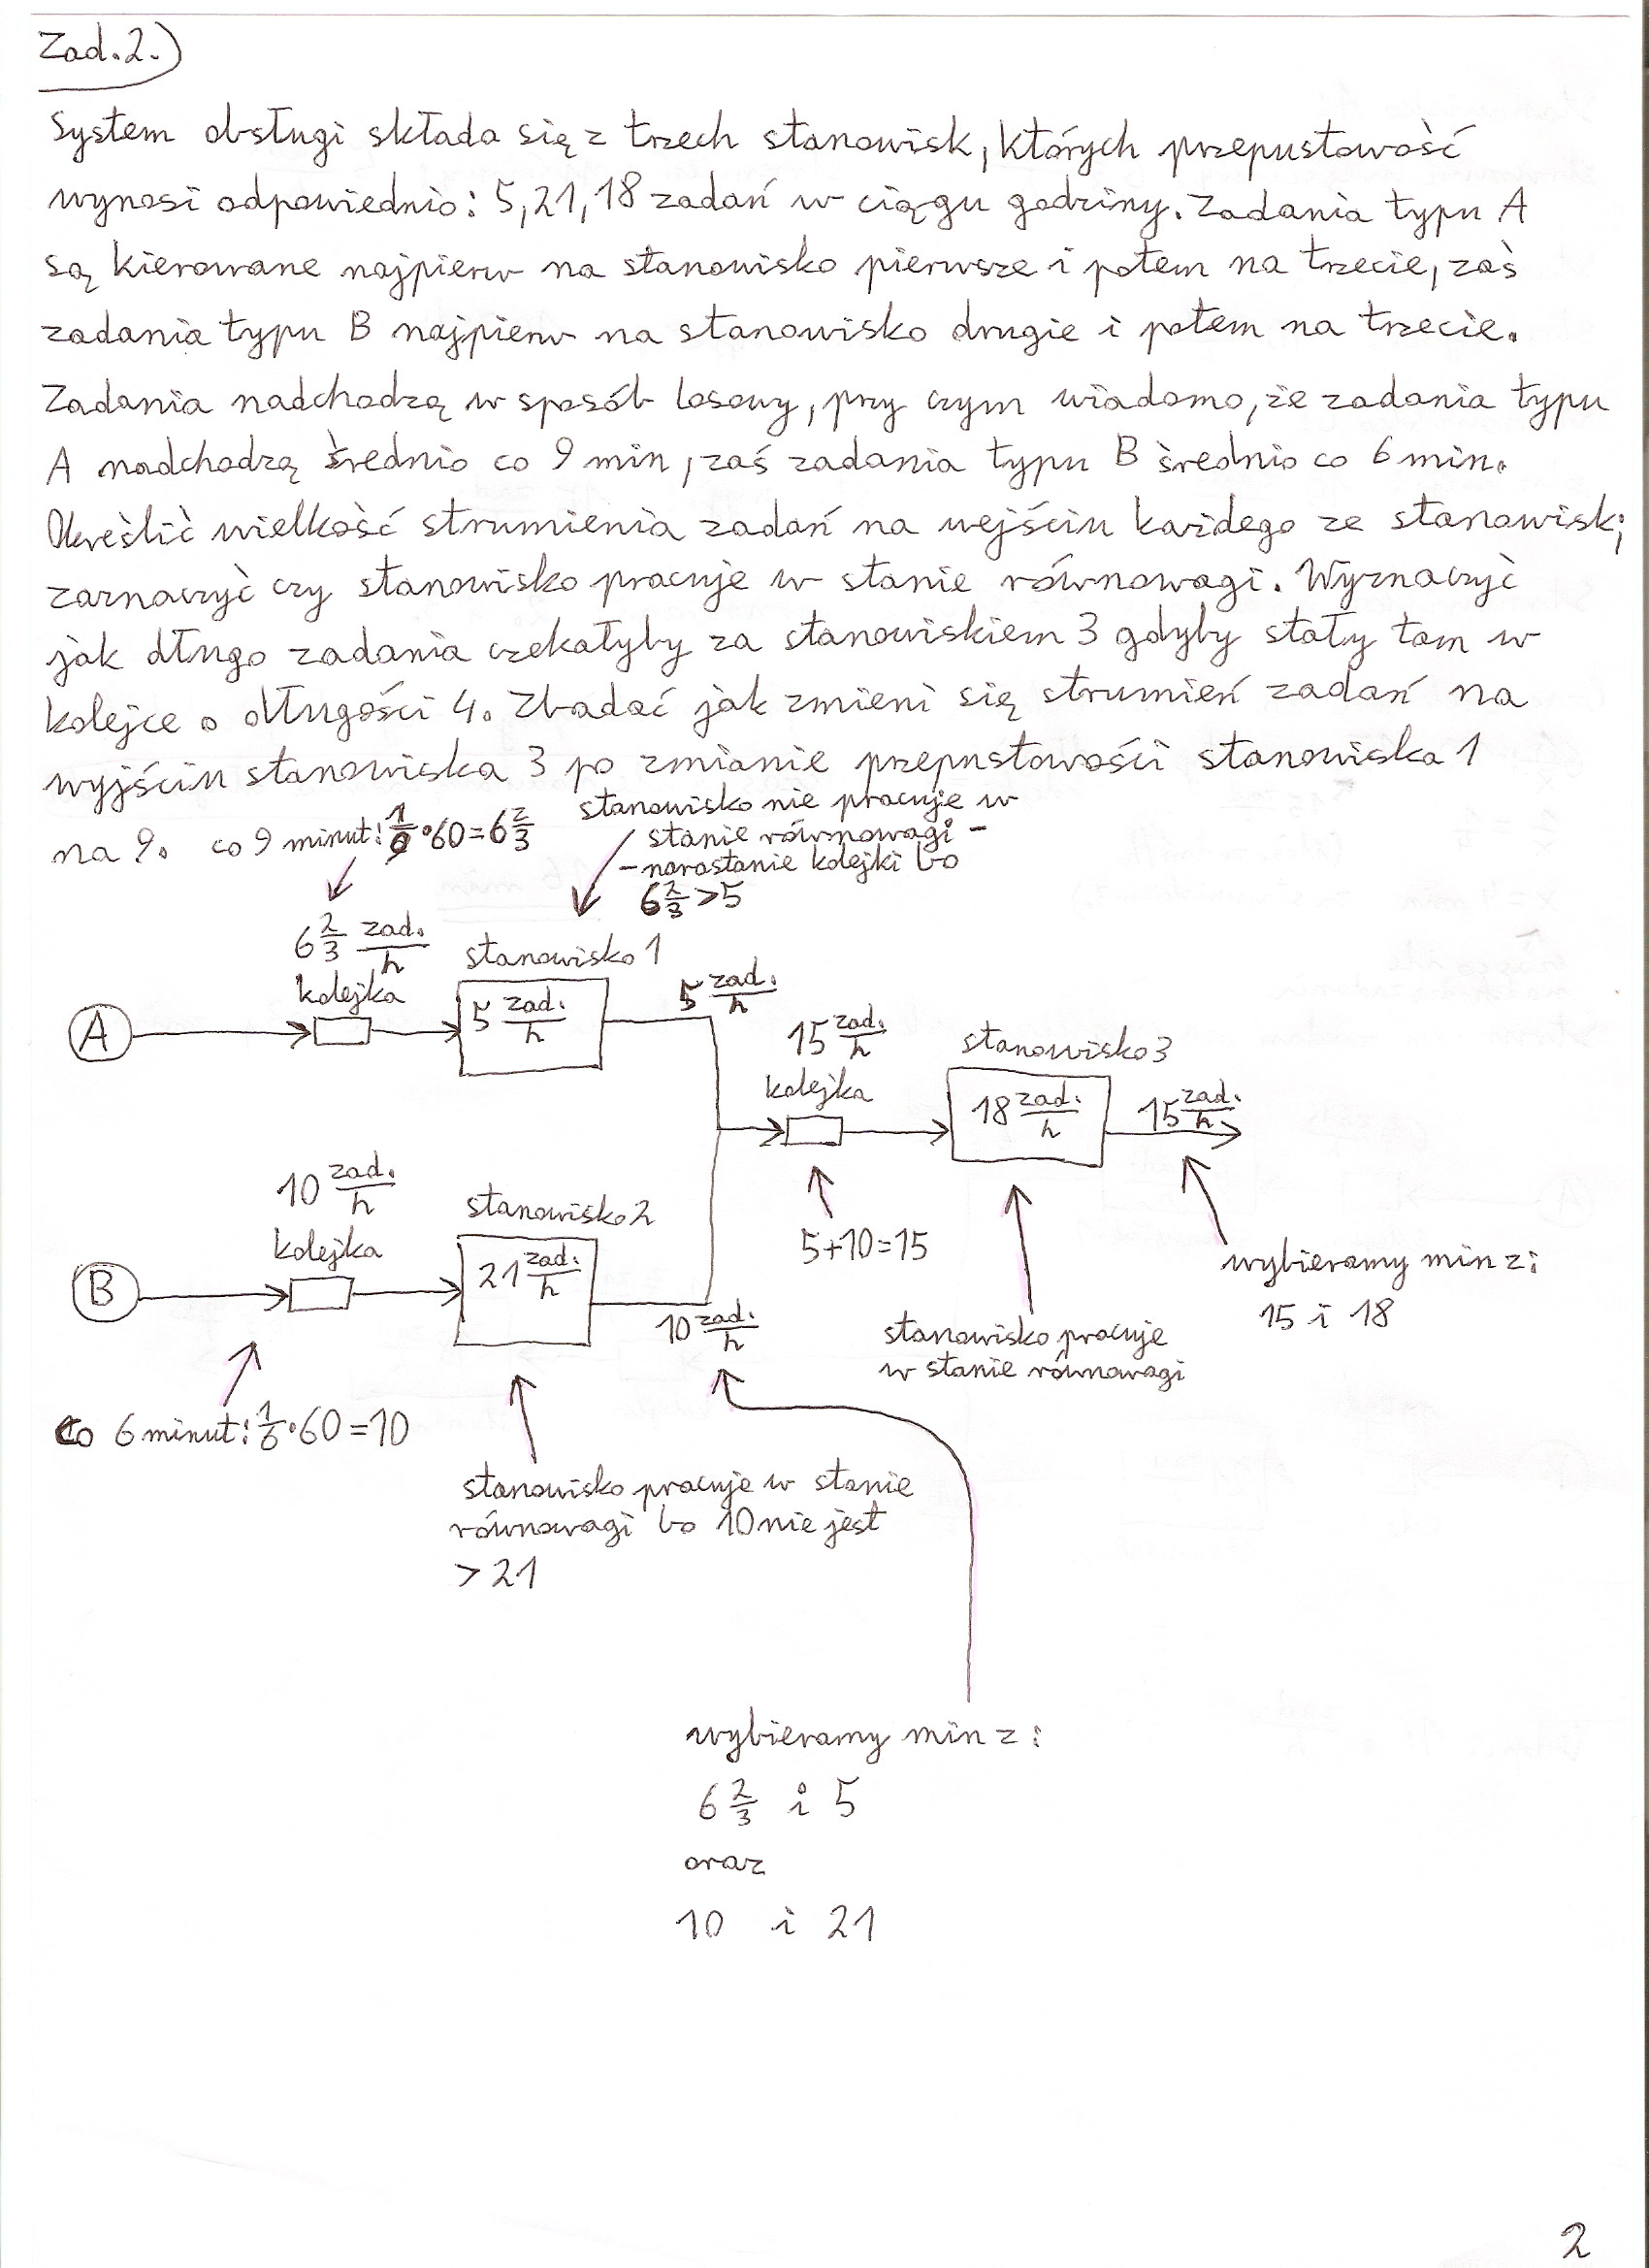 Zad.2.)
System obsługi składa się z trzech stanowisk, których przepustowość
wynosi odpowiednio: 5, 21, 18 zadań w ciągu godziny. Zadania typu A
są kierowane najpierw na stanowisko pierwsze i potem na trzecie, zaś
zadania typu B najpierw na stanowisko drugie i potem na trzecie.
Zadania nadchodzą w sposób losowy, przy czym wiadomo, że zadania typu
A nadchodzą średnio co 9 min, zaś zadania typu B średnio co 6 min.
Określić wielkość strumienia zadań na wejściu każdego ze stanowisk;
zaznaczyć czy stanowisko pracuje w stanie równowagi. Wyznaczyć
jak długo zadania czekałyby za stanowiskiem 3 gdyby stały tam w
kolejce o długości 4. Zbadać jak zmieni się strumień zadań na
wyjściu stanowiska 3 po zmianie przepustowości stanowiska 1
na 9.
co 9 minut: 1/9 · 60 = 6 2/3
stanowisko nie pracuje w
stanie równowagi -
- narastanie kolejki bo
6 2/3 > 5
6 2/3 zad./h
kolejka
stanowisko 1
A
5 zad./h
5 zad./h
15 zad./h
kolejka
stanowisko 3
18 zad./h
15 zad./h
10 zad./h
kolejka
stanowisko 2
B
21 zad./h
10 zad./h
5+10=15
wybieramy min z:
15 i 18
stanowisko pracuje
w stanie równowagi
co 6 minut: 1/6 · 60 = 10
stanowisko pracuje w stanie
równowagi bo 10 nie jest
> 21
wybieramy min z:
6 2/3 i 5
oraz
10 i 21
2